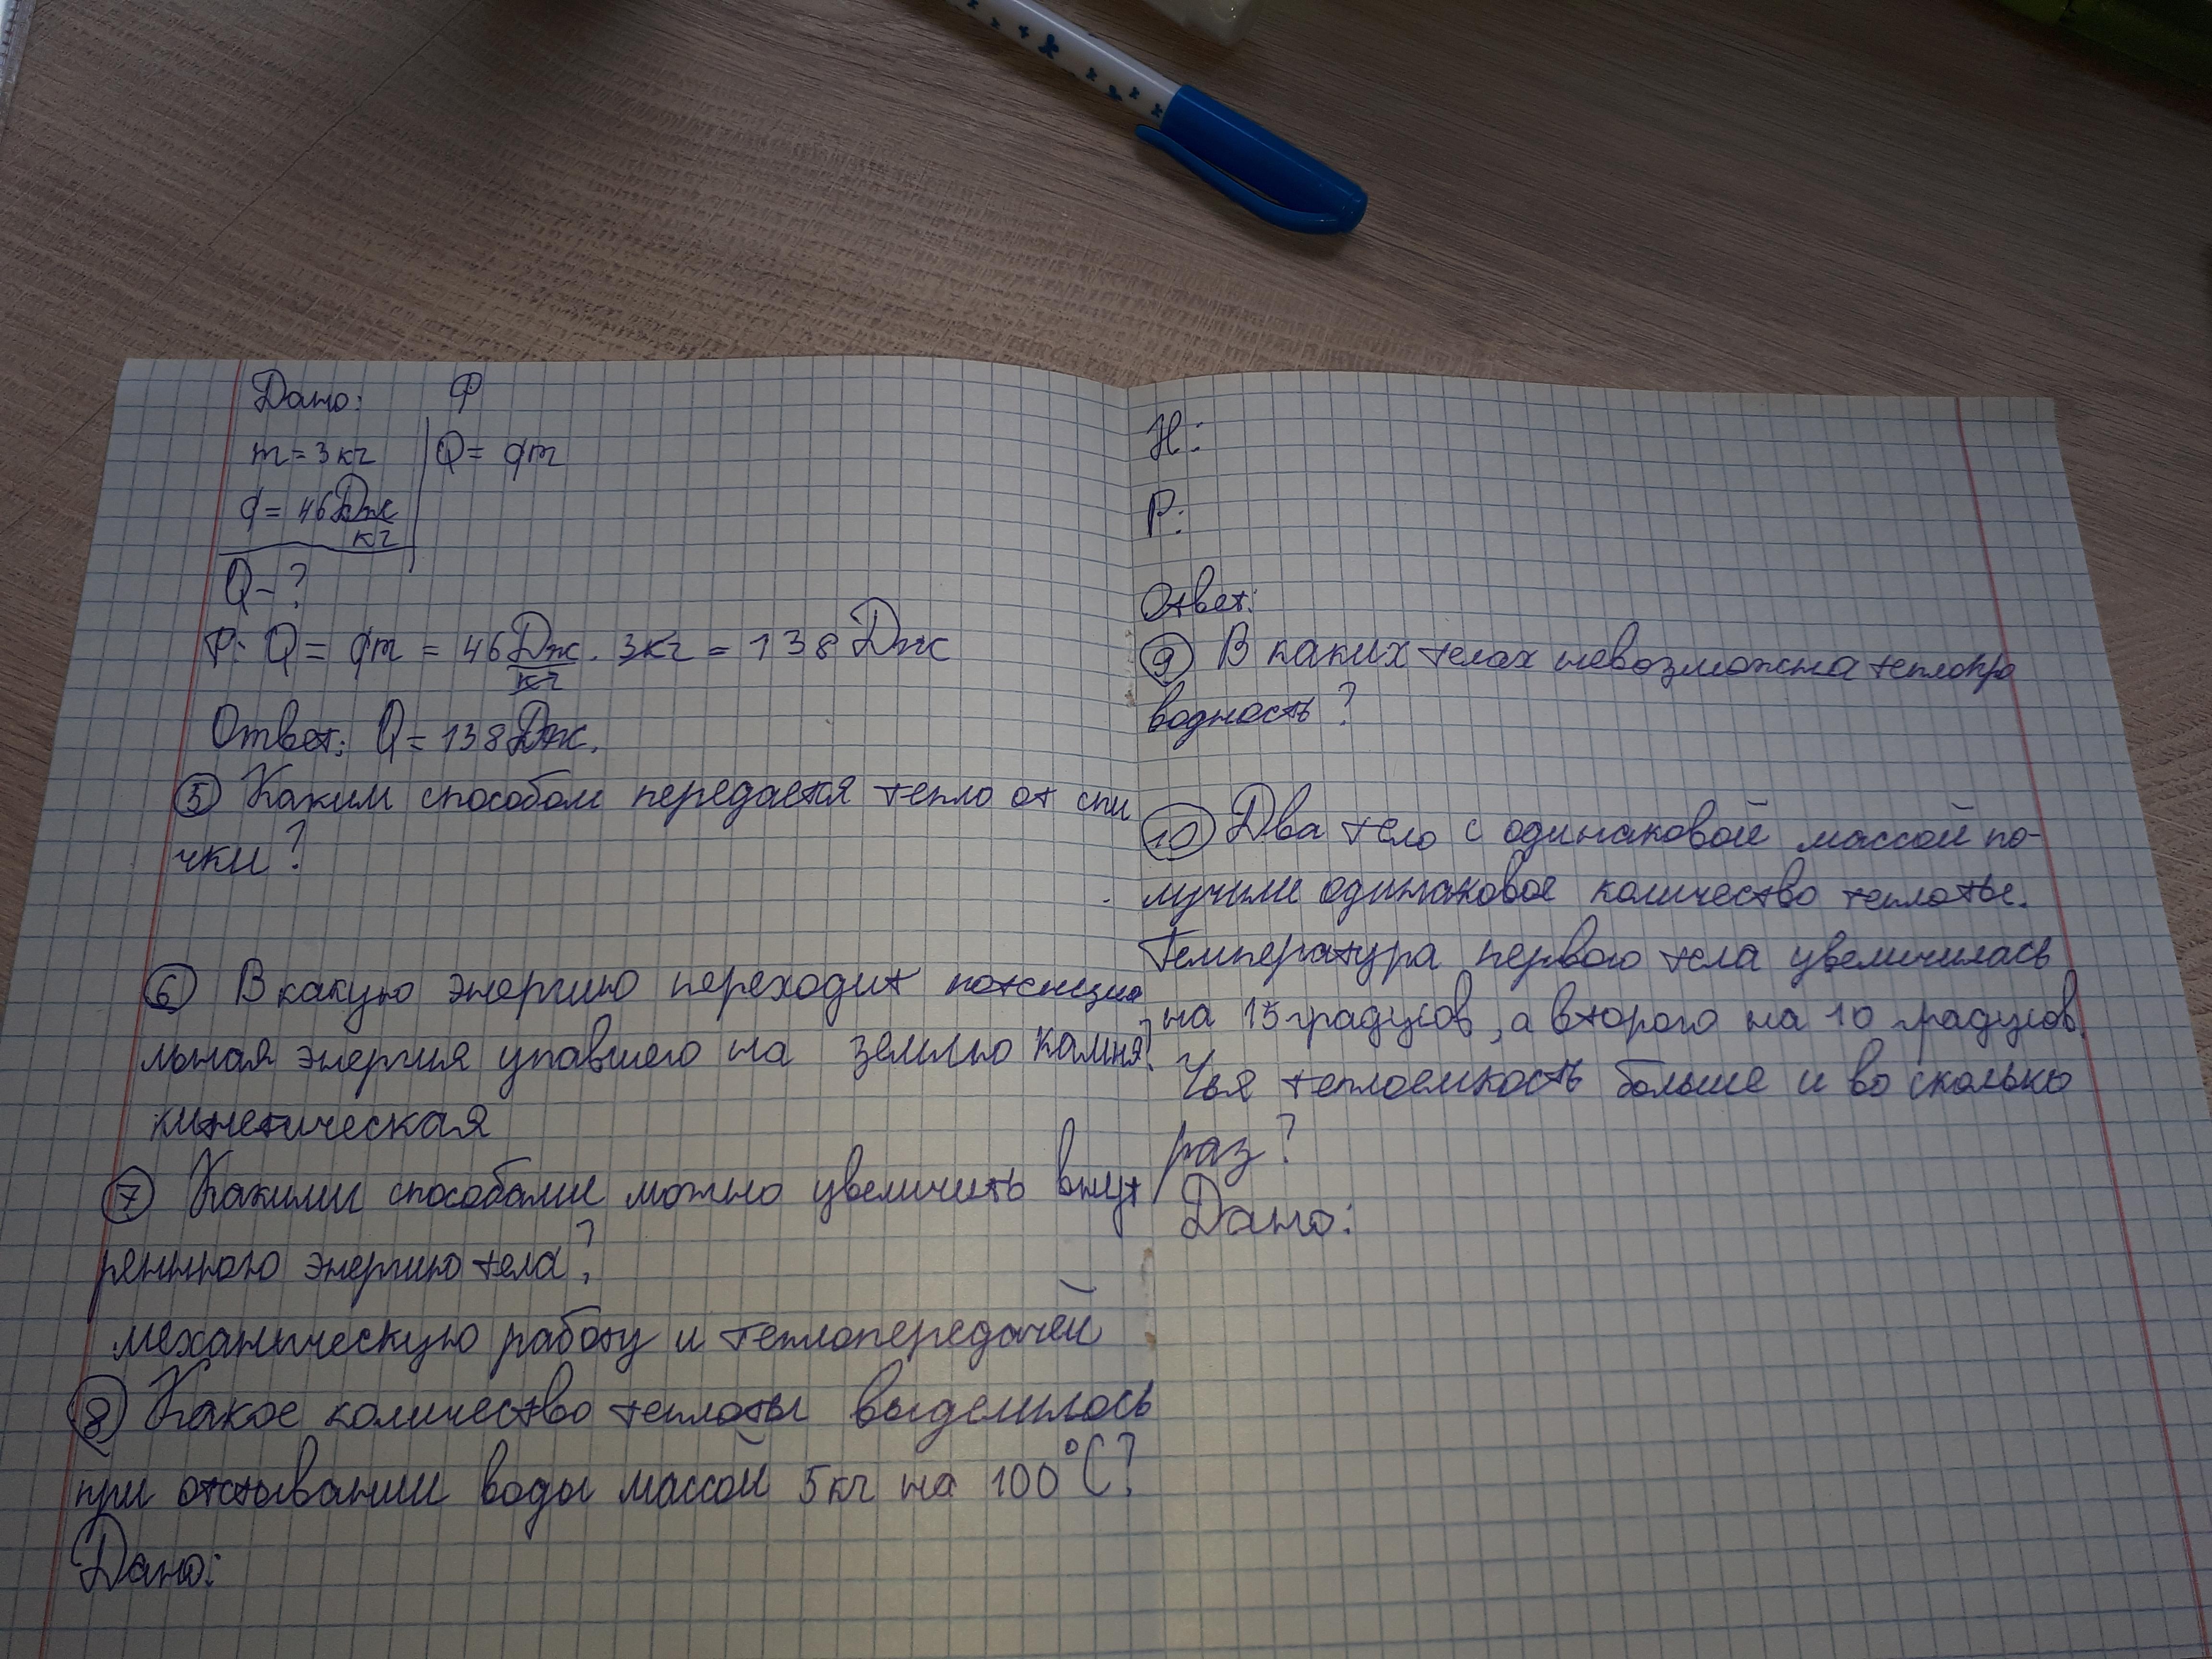 Дано: Ф
m = 3 кг Q = qm
q = 46 Дж/кг
Q - ?
Р: Q = qm = 46 Дж/кг · 3кг = 138 Дж
Ответ: Q = 138 Дж.
5 Каким способом передается тепло от спи
чки?
6 В какую энергию переходит потенциа
льная энергия упавшего на землю камня?
кинетическая
7 Какими способами можно увеличить внут
реннюю энергию тела?
механическую работу и теплопередачей
8 Какое количество теплоты выделилось
при отстывании воды массой 5кг на 100°С?
Дано:
Н:
Р:
Ответ:
9 В каких телах невозможна теплопро
водность?
10 Два тело с одинаковой массой по-
лучили одинаковое количество теплоты.
Температура первого тела увеличилась
на 15 градусов, а второго на 10 градусов.
Чья теплоемкость больше и во сколько
раз?
Дано: